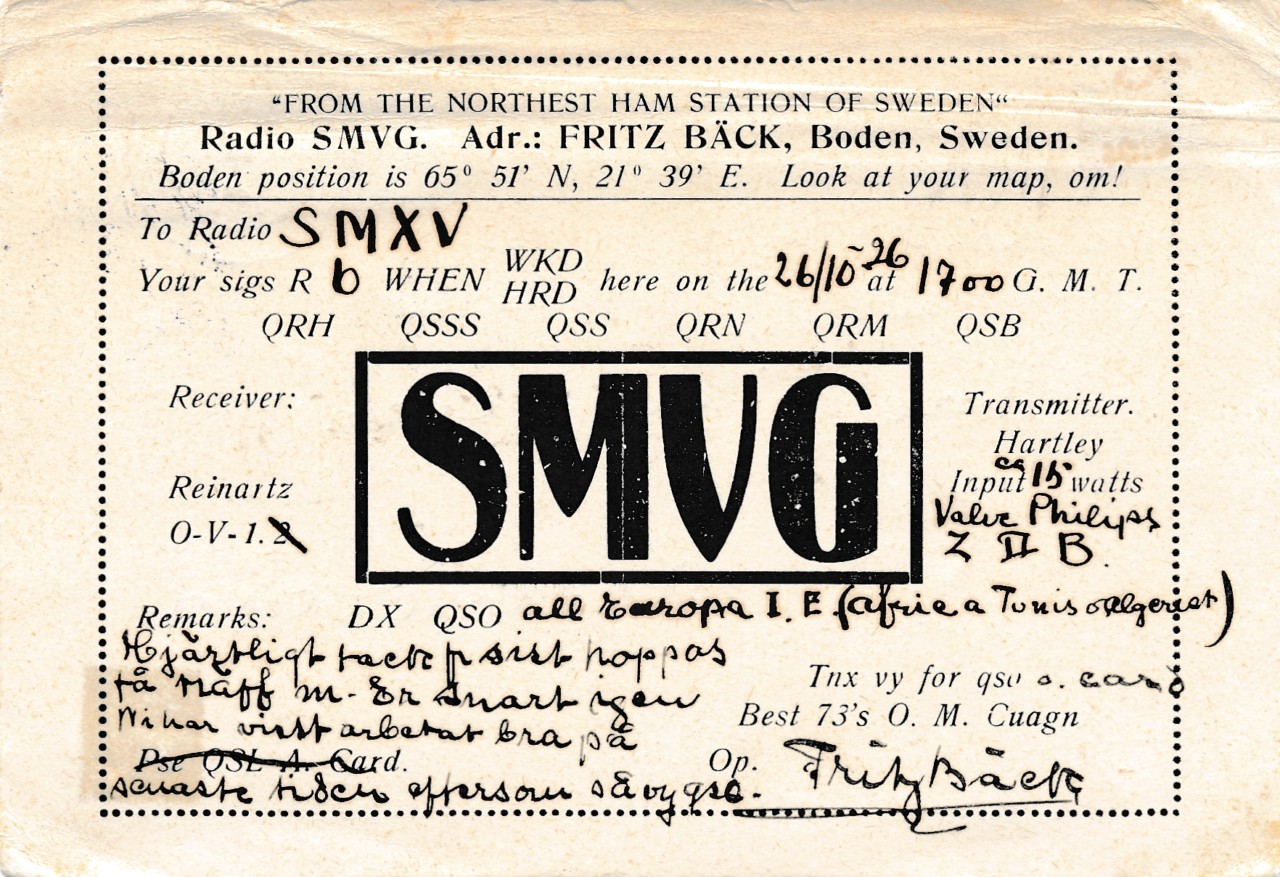 "FROM THE NORTHEST HAM STATION OF SWEDEN"
Radio SMVG. Adr.: FRITZ BÄCK, Boden, Sweden.
Boden position is 65° 51' N, 21° 39' E. Look at your map, om!
To Radio SMXV
Your sigs R 6 WHEN WKD HRD here on the 26/10-26 at 1700 G. M. T.
QRH QSSS QSS QRN QRM QSB
SMVG
Receiver:
Reinartz
O-V-1.2
Transmitter.
Hartley
Input ca 15 watts
Valve Philips
Z II B
Remarks: DX QSO all Europa I. E. (africa Tunis o algeriet)
Hjärtligt tack fr sist hoppas
få träff m. Er snart igen
Ni har visst arbetat bra på
Pse QSL A. Card.
senaste tiden eftersom
Tnx vy for qso o. card
Best 73's O. M. Cuagn
Op. Fritz Bäck